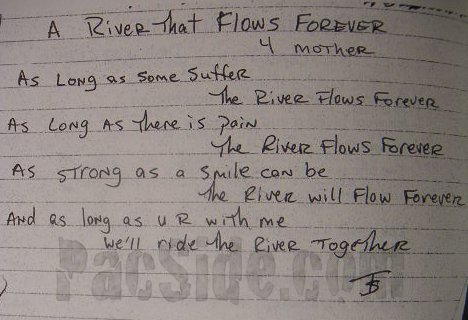 A River That Flows FOREVER
4 MOTHER
As Long as some suffer
The River Flows Forever
As Long As There is pain
The River Flows Forever
As strong as a smile can be
The River will Flow Forever
And as long as u R with me
we'll ride the River Together
PacSide.com